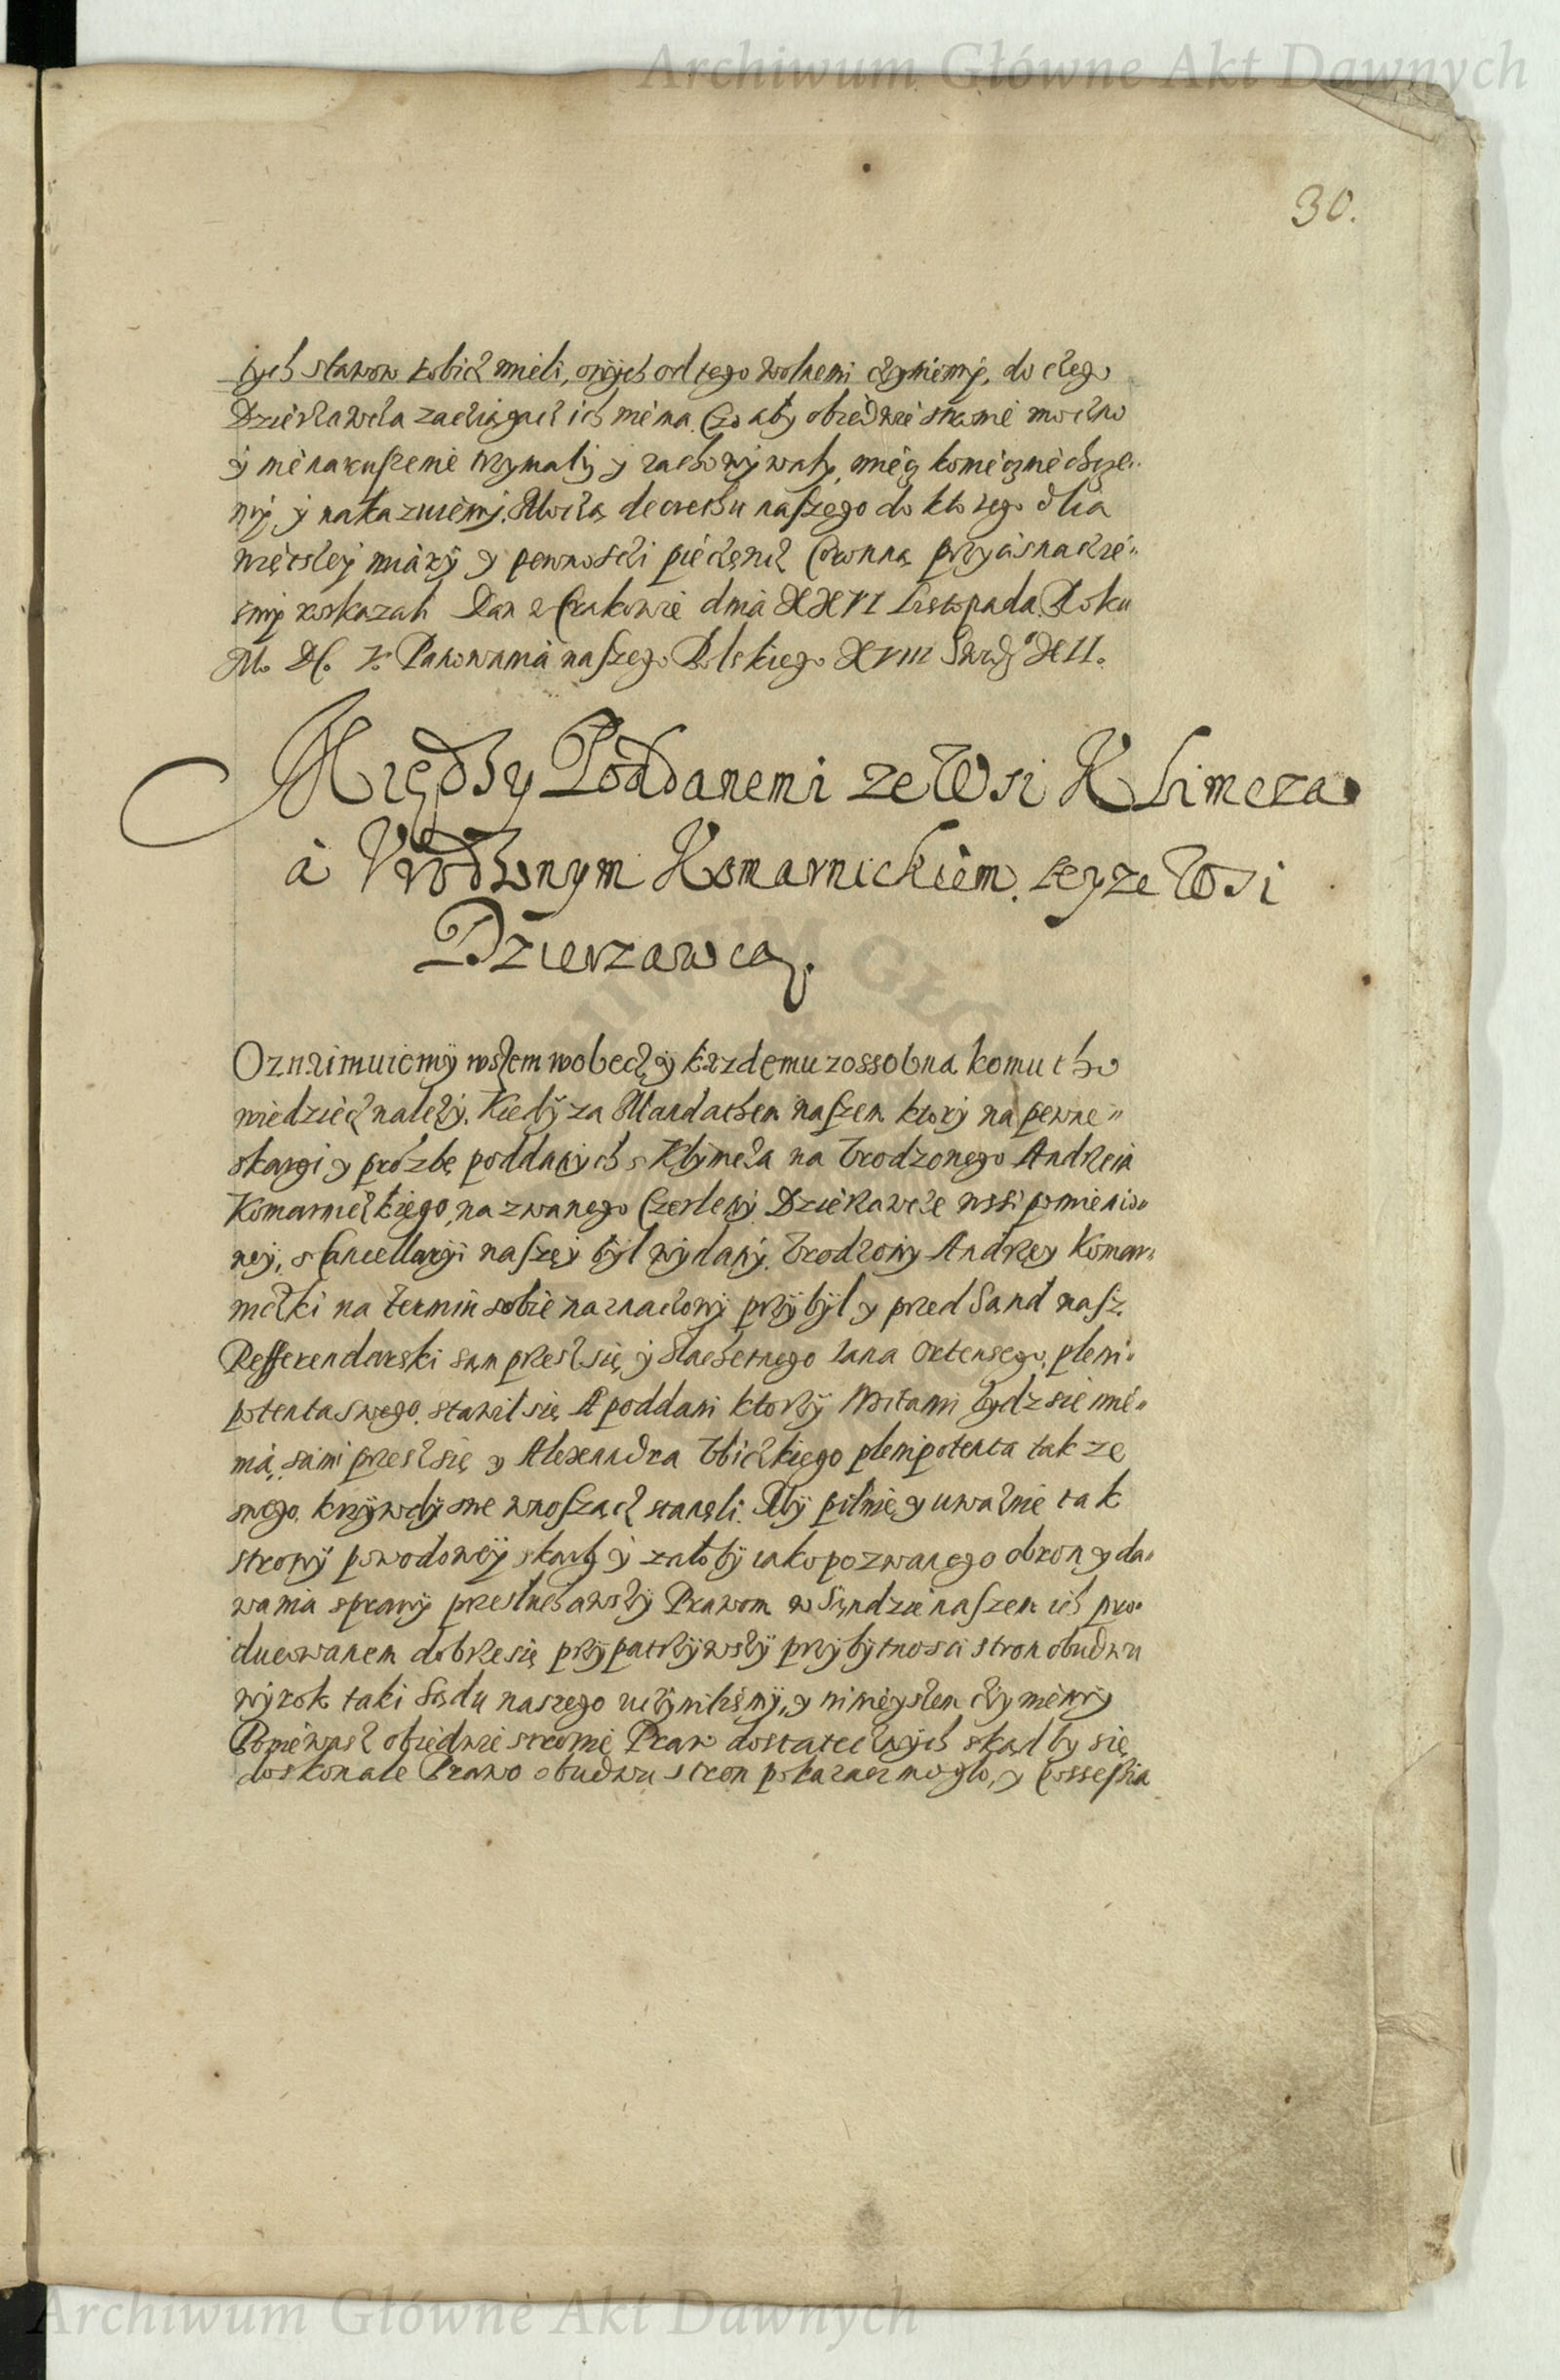 Archiwum Główne Akt Dawnych
30.
tych stawow robicz mieli, onych od tego wolnemi czyniemy, do czego
Dzierżawcza zacziągacz ich niema. Czo aby obiedwie stronie moczno
y nienaruszenie trzymały y zachowywały, mięcz koniecznie chcze„
my y nakazuiemy. Moczą decrethu naszego do ktorego dlia
większey wiary y pewnosczi pieczęncz Coronną przycisnacz ie„
smy roskazali. Dan w Crakowie dnia XXVI Listopada Roku
M. DC. V. Panowania naszego Polskiego XVIII Swedz° XII.
Między Poddanemi ze Wsi Klimcza
à Vrodzonym Komarnickiem. teyze Wsi
Dzierzawcą.
Oznaimuiemy wszem wobecz y kazdemu zossobna komu tho
wiedziecz należy. Kiedy za Mandathem naszem ktory na pewne„
skargi y prozbę poddanych s Klymcza na Urodzonego Andrzeia
Komarniczkiego, nazwanego Czerleny Dzierzawcze wsi pomienio„
ney, s Cancellaryi naszey był wydany. Urodzony Andrzey Komar„
niczki na termin sobie naznaczony przybył y przed Sąnd nasz
Refferendarski sąm przesz się y Slachetnego Iana Ortensego, pleni„
potenta swego. stawił się A poddani ktorzy Witami bydz się mie„
nią, sami przesz się y Alexandra Ubiczkiego plenipotenta takze
swego, krzywdy swe wnosząncz stanęli. My pilnie y uważnie tak
strony powodowey skargi y załoby iako pozwanego obron y da„
wania sprawy przesłuchawszy Prawom w Sąndzie naszem ich pro„
ducowanem dobrze się przypatrzywszy przy bytnosci stron obudwu
wyrok taki Sądu naszego uczynilismy, y ninieyszem czyniemy
Ponieważ obiedwie stronie Praw dostatecznych skąd by się
doskonale Prawo obudwu stron pokazacz mogło, y possessia
Archiwum Główne Akt Dawnych